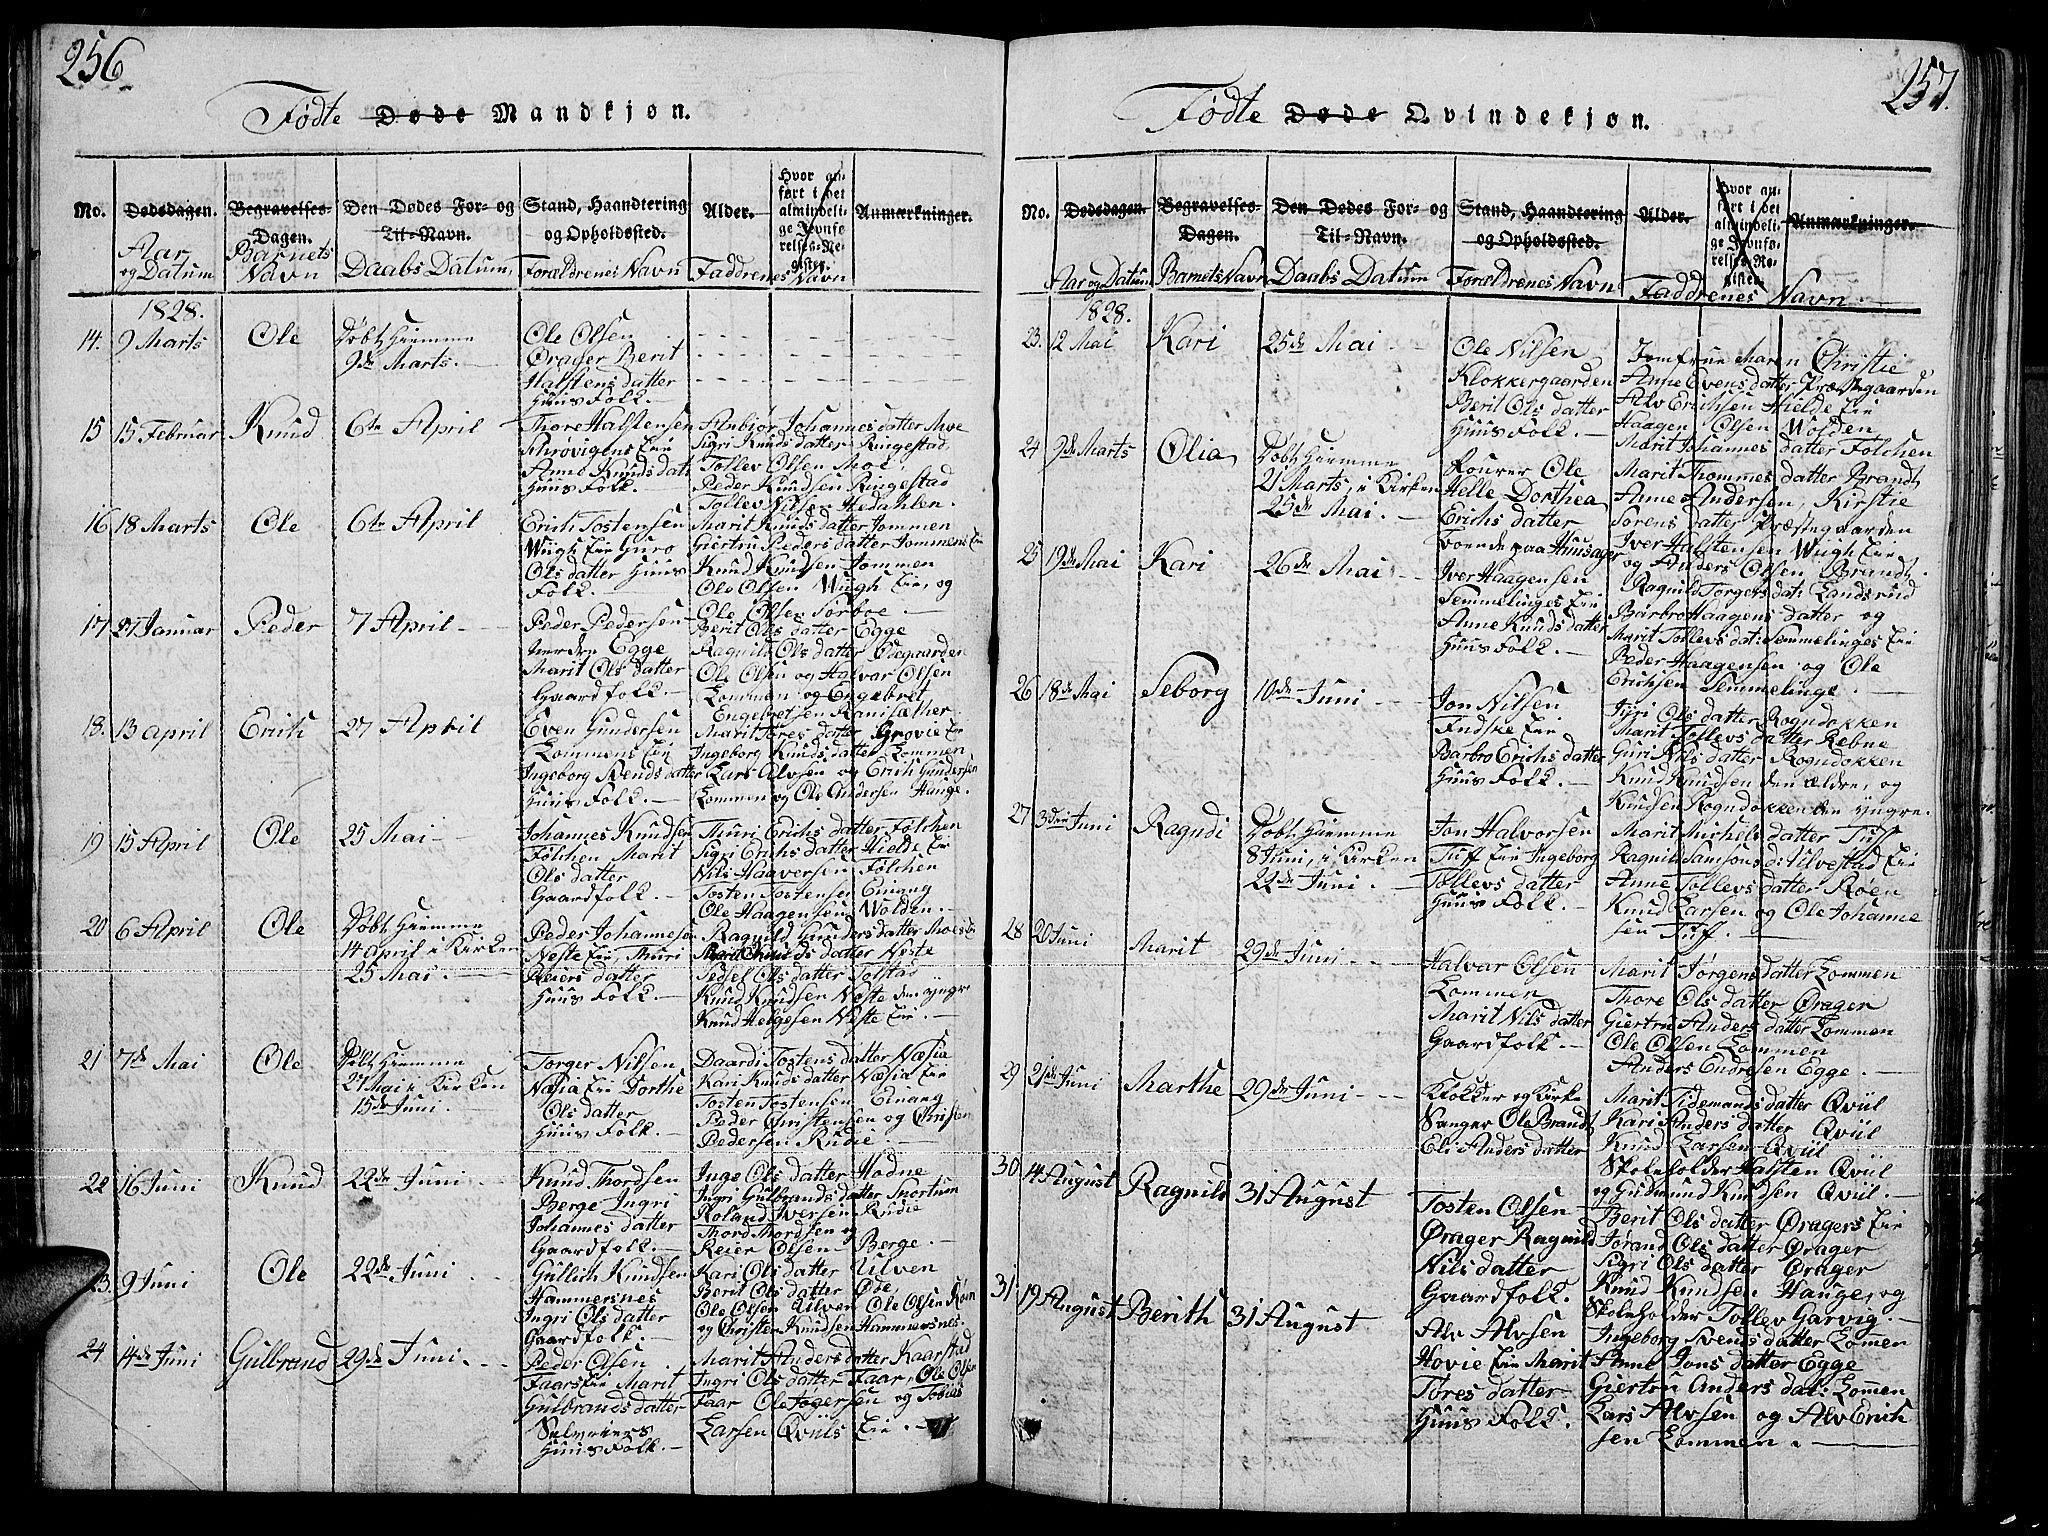 256
Fødte Døde Mandkjøn.
No.
Dødsdagen.
Aar og Datum
Begravelses-Dagen.
Barnets Navn
Den Dødes For- og Til-Navn.
Daabs Datum,
Stand, Haandtering og Opholdssted.
Forældrenes Navn
Alder.
Faddrenes Navn
Hvor anført i det almindelige Jevnførelses-Register.
Anmærkninger.
1828.
14. 9 Marts
Ole
Døbt Hiemme
9de Marts.
Ole Olsen
Ørager Berit
Halstens datter
Huus Folk.
15 15 Februar
Knud
6te April
Thore Halstensen
Eie
Anne Knuds dat:
Huus Folk.
Anbiør Johannes datter Moe
Sigri Knuds datter Ringestad,
Tollev Olsen Moe,
Peder Knudsen Ringestad
Tollev Nilsen Hedahlen.
16 18 Marts
Ole
6te April
Erich Tostensen
Wiigh Eie Guro
Ols datter Huus
Folk.
Marit Knuds datter Jommen
Giertru Peders datter Jommens Eie
Knud Knudsen Jommen
Ole Olsen Wiigh Eie, og
Ole Olsen Sørboe.
17 27 Januar
Peder
7 April
Peder Pedersen
Egge
Marit Ols datter
Gaardfolk
Berit Ols datter Egge
Ragnild Ols datter Ødegaarden
Ole Olsen og Halvar Olsen
Lommen og Engebret
Engebretsen Ranisæther.
18. 13 April
Erich
27 April
Even Gundersen
Lommens Eie
Ingeborg Svends datter
Huus Folk.
Marit Tores datter Grovie Eie
Ingeborg Knuds datter Lommen,
Lars Alvsen og Erich Gundersen
Lommen og Ole Andersen Hauge.
19 15 April
Ole
25 Mai
Johannes Knudsen
Følchen Marit
Ols datter
Gaardfolk.
Thuri Erichs datter Følchen
Sigri Erichs datter Hielde Eie
Nils Haaversen Følchen
Tosten Tostensen Einang
Ole Haagensen Wolden.
20 6 April
Ole
Døbt Hiemme
14 April i Kirken
25 Mai
Peder Johannesen
Neste Eie, Thuri
Reiers datter
Huus Folk.
Ragnild Gunders datter Moe
Marit Knuds datter Neste
Sedsel Ols datter Tolstad
Knud Knudsen Neste den yngre
Knud Helgesen Neste Eie.
21 7de Mai
Ole
Døbt Hiemme
27 Mai i Kirken
15de Juni.
Torger Nilsen
Næsia Eie Dorthe
Ols datter
Huus Folk.
Daardi Tostens datter Næsia
Kari Knuds datter Næsia Eie
Tosten Tostensen Einang
Peder Christensen og Christen
Pedersen Rudie.
22 16 Juni
Knud
22de Juni
Knud Thordsen
Berge Ingri
Johannes datter
Gaardfolk.
Inge Ols datter Hodne
Ingri Gulbrands datter Snortum
Roland Iversen Rudie
Thord Thordsen og
Reier Olsen Berge.
23. 9 Juni
Ole
22de Juni
Gullich Knudsen
Hammersnes
Ingri Ols datter
Gaardfolk.
Kari Ols datter Ulven
Berit Ols datter Øde
Ole Olsen Ulven Ole Olsen
og Christen Knudsen Hammersnes.
24 14de Juni
Gulbrand
29de Juni
Peder Olsen
Faars Eie Marit
Gulbrands datter
Huus Folk.
Marit Anders datter Kaarstad
Ingri Ols datter Faar, Ole Olsen
Faar Ole Jøgersen og Tobias
Larsen Qviils Eie.
257.
Fødte Døde Qvindekjøn.
No.
Dødsdagen.
Aar og Datum
Begravelses-Dagen.
Barnets Navn
Den Dødes For- og Til-Navn.
Daabs Datum
Stand, Haandtering og Opholdssted.
Forældrenes Navn
Alder.
Faddrenes Navn.
Hvor anført i det almindelige Jevnførelses-Register.
Anmærkninger.
1828.
23. 12 Mai
Kari
25de Mai
Ole Nilsen
Klokkergaarden
Berit Ols datter
Huus Folk.
Jomfrue Maren Christie
Anne Evens datter Præstegaarden
Alv Erichsen Hielde Eie
Haagen Olsen Wolden
Marit Johannes datter Følchen
24 9de Marts
Olia
Døbt Hiemme
21 Marts, i Kirken
25de Mai.
Rourer Ole
Helle Dorthea
Erichs datter
boende paa Huusager
Marit Thommes datter Brandt
Anne Andersen, Kirstie
Sørens datter Præstegaarden
Iver Halstensen Wiigh Eie
og Anders Olsen Brandt.
25 19de Mai
Kari
26de Mai
Iver Haagensen
Semmelinges Eie
Anne Knuds datter
Huus Folk.
Ragnild Torgers dat: Landsrud
Barbro Haagens datter og
Marit Tollevs dat: Semmelinges Eie
Peder Haagensen og Ole
Erichsen Semmelinge.
26 18de Mai
Seborg
10de Juni
Jon Nilsen
Eie
Barbro Erichs datter
Huus Folk.
Ols datter Rogndokken
Marit Tollevs datter Rebne
Guri Nils datter Rogndokken
Knud Knudsen den ældre, og
Knudsen Rogndokken den yngre.
27 3die Juni
Ragndi
Døbt Hiemme
8 Juni, i Kirken
22de Juni.
Jon Halvorsen
Tuff Eie Ingeborg
Tollevs datter
Huus Folk.
Marit Michels datter Tuf
Ragnild Samsons d: Ulvestad Eie
Anne Tollevs datter Roen
Knud Larsen og Ole Johanne
sen Tuff.
28 20 Juni
Marit
29de Juni
Halvar Olsen
Lommen
Marit Nils datter
Gaardfolk.
Marit Jørgens datter Lommen
Thore Ols datter Ørager
Giertru Anders datter Lommen
Ole Olsen Lommen
Anders Endresen Egge.
29 21de Juni
Marthe
29de Juni
Klokker og Kirke
Sanger Ole Brandt
Eli Anders datter
Marit Tidemands datter Qviil
Kari Anders datter Qviil
Knud Larsen Qviil
Skoleholder Halsten Qviil
og Gudmund Knudsen Qviil.
30 14 August
Ragnild
31 August
Tosten Olsen
Ørager Ragnild
Nils datter
Gaardfolk.
Berit Ols datter Øragers Eie
Jørand Ols datter Ørager
Sigri Ols datter Ørager
Knud Knudsen Hauge, og
Skoleholder Tollev Garvig.
31 19 August
Berith
31 August
Alv Alvsen
Hovie Eie Marit
Tores datter
Huus Folk.
Ingeborg Svends datter Lomen
Anne Jons datter Egge
Giertru Anders dat: Lommen
Lars Alvsen og Alv Erich
sen Lommen.